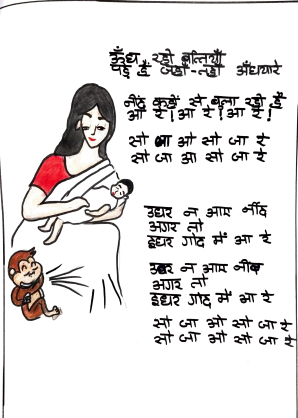 ऊँघ रही बत्तियाँ
पड़े हैं जहाँ-तहाँ अँधयारे
नींद कहे से बुला रही है
आ रे! आ रे! आ रे!
सो जा ओ सो जा रे
सो जा आ सो जा रे
उधर न आए नींद
अगर तो
इधर गोद में आ रे
उधर न आए नींद
अगर तो
इधर गोद में आ रे
सो जा ओ सो जा रे
सो जा ओ सो जा रे